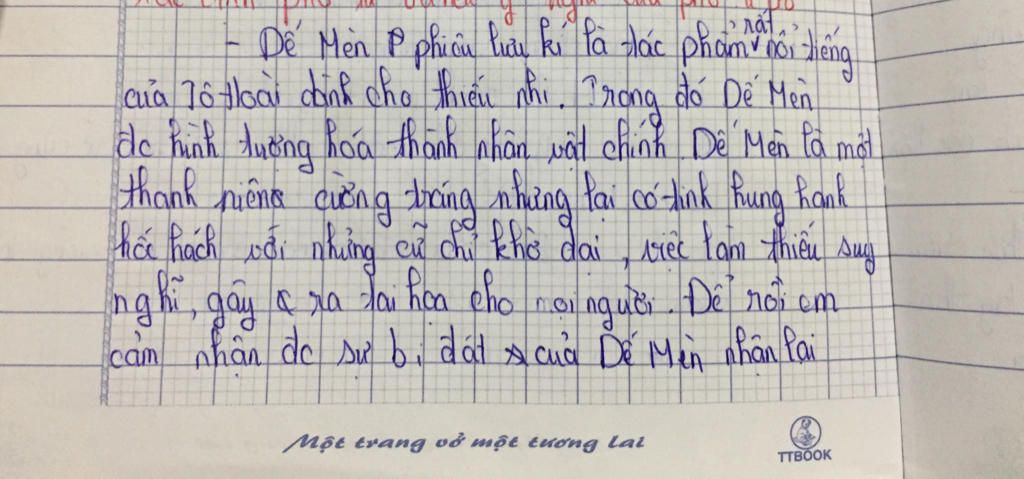 - Dế Mèn phiêu lưu kí là tác phẩm rất nổi tiếng
của Tô Hoài dành cho thiếu nhi. Trong đó Dế Mèn
đc hình tượng hoá thành nhân vật chính. Dế Mèn là một
thanh niên cường tráng nhưng lại có tính hung hanh
hốc hách với những cử chỉ khờ dại, việc làm thiếu suy
nghĩ, gây ra tai hoạ cho mọi người. Để rồi em
cảm nhận đc sự bi đát của Dế Mèn nhân lại
Một trang vở một tương lai
TTBOOK